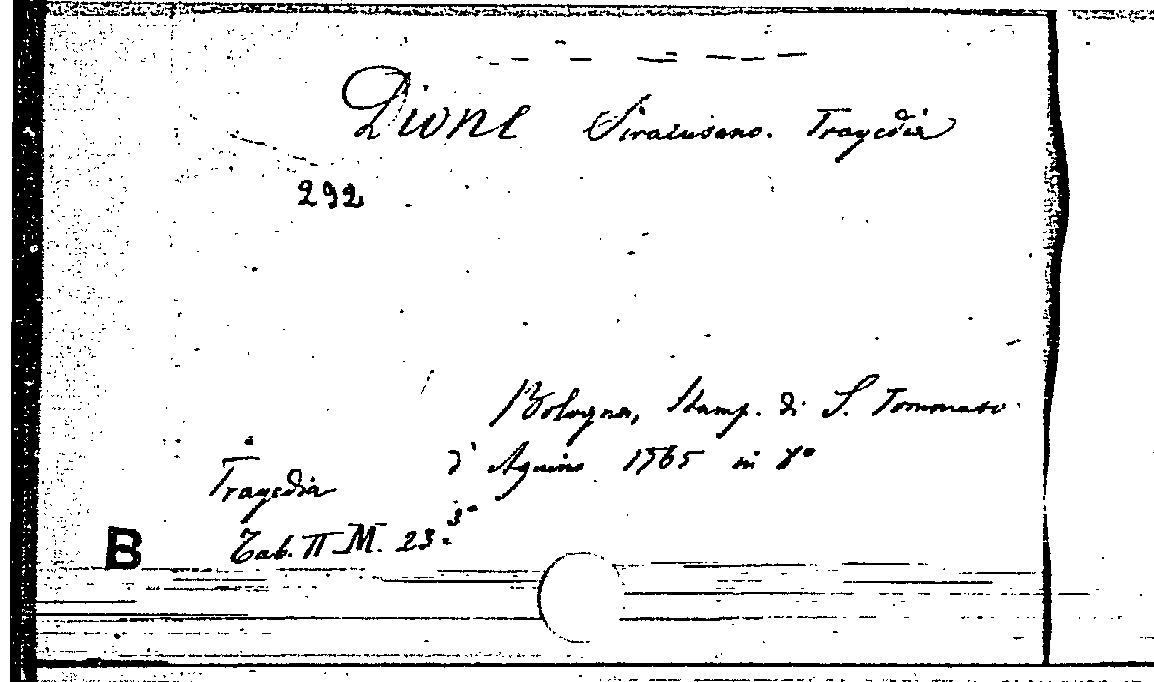 Dione Siracusano. Tragedia
292
Bologna, Stamp. di S. Tommaso
d'Aquino 1765 in 8°
Tragedia
Tab. II M. 23. 3°
B